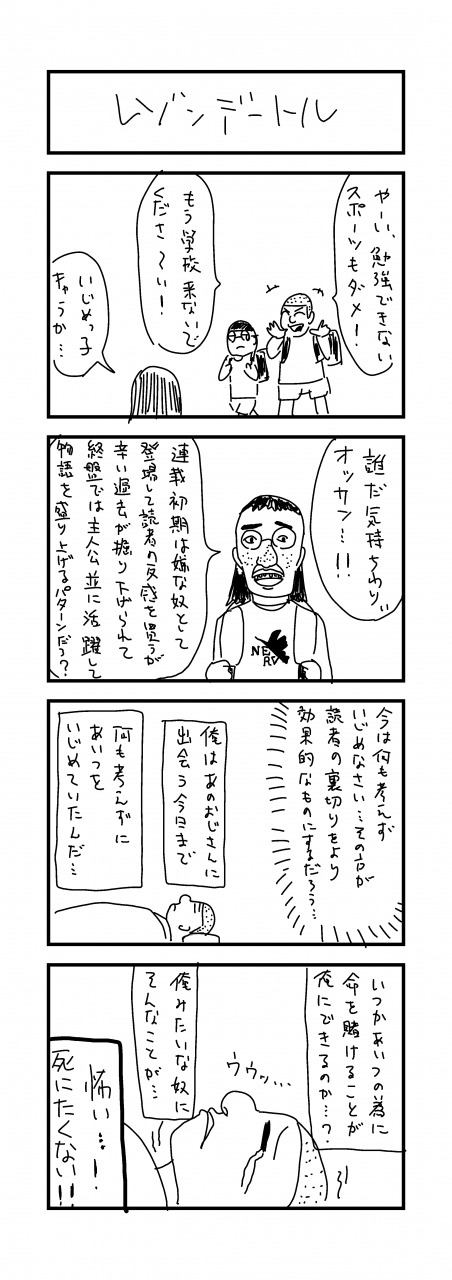 レゾンデートル
やーい、勉強できない
スポーツもダメ！
もう学校来ないで
くださ〜い！
いじめっ子
キャラか…
誰だ気持ちわりぃ
オッサン…!!
連載初期は嫌な奴として
登場して読者の反感を買うが
辛い過去が掘り下げられて
終盤では主人公並に活躍して
物語を盛り上げるパターンだろ？
NE
RV
今は何も考えず
いじめなさい…その方が
読者の裏切りをより
効果的なものにするだろう…
俺はあのおじさんに
出会う今日まで
何も考えずに
あいつを
いじめていたんだ…
いつかあいつの為に
命を賭けることが
俺にできるのか…？
俺みたいな奴に
そんなことが…
ウウッ…
怖い…！
死にたくない!!